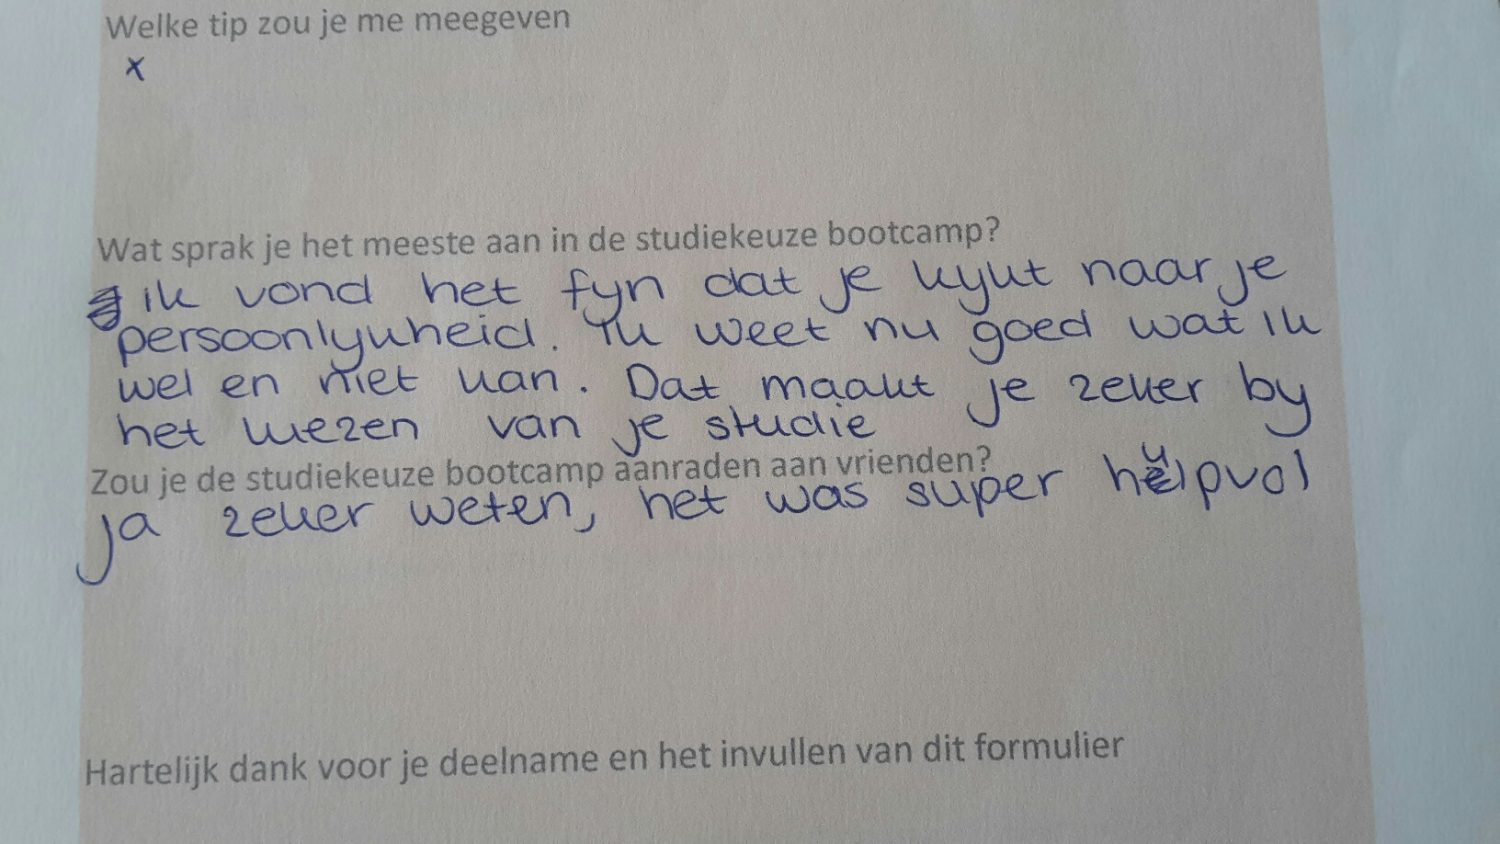 Welke tip zou je me meegeven
x
Wat sprak je het meeste aan in de studiekeuze bootcamp?
ik vond het fyn dat je kykt naar je
persoonlykheid. Ik weet nu goed wat ik
wel en niet kan. Dat maakt je zeker by
het kiezen van je studie
Zou je de studiekeuze bootcamp aanraden aan vrienden?
ja zeker weten, het was super hulpvol
Hartelijk dank voor je deelname en het invullen van dit formulier